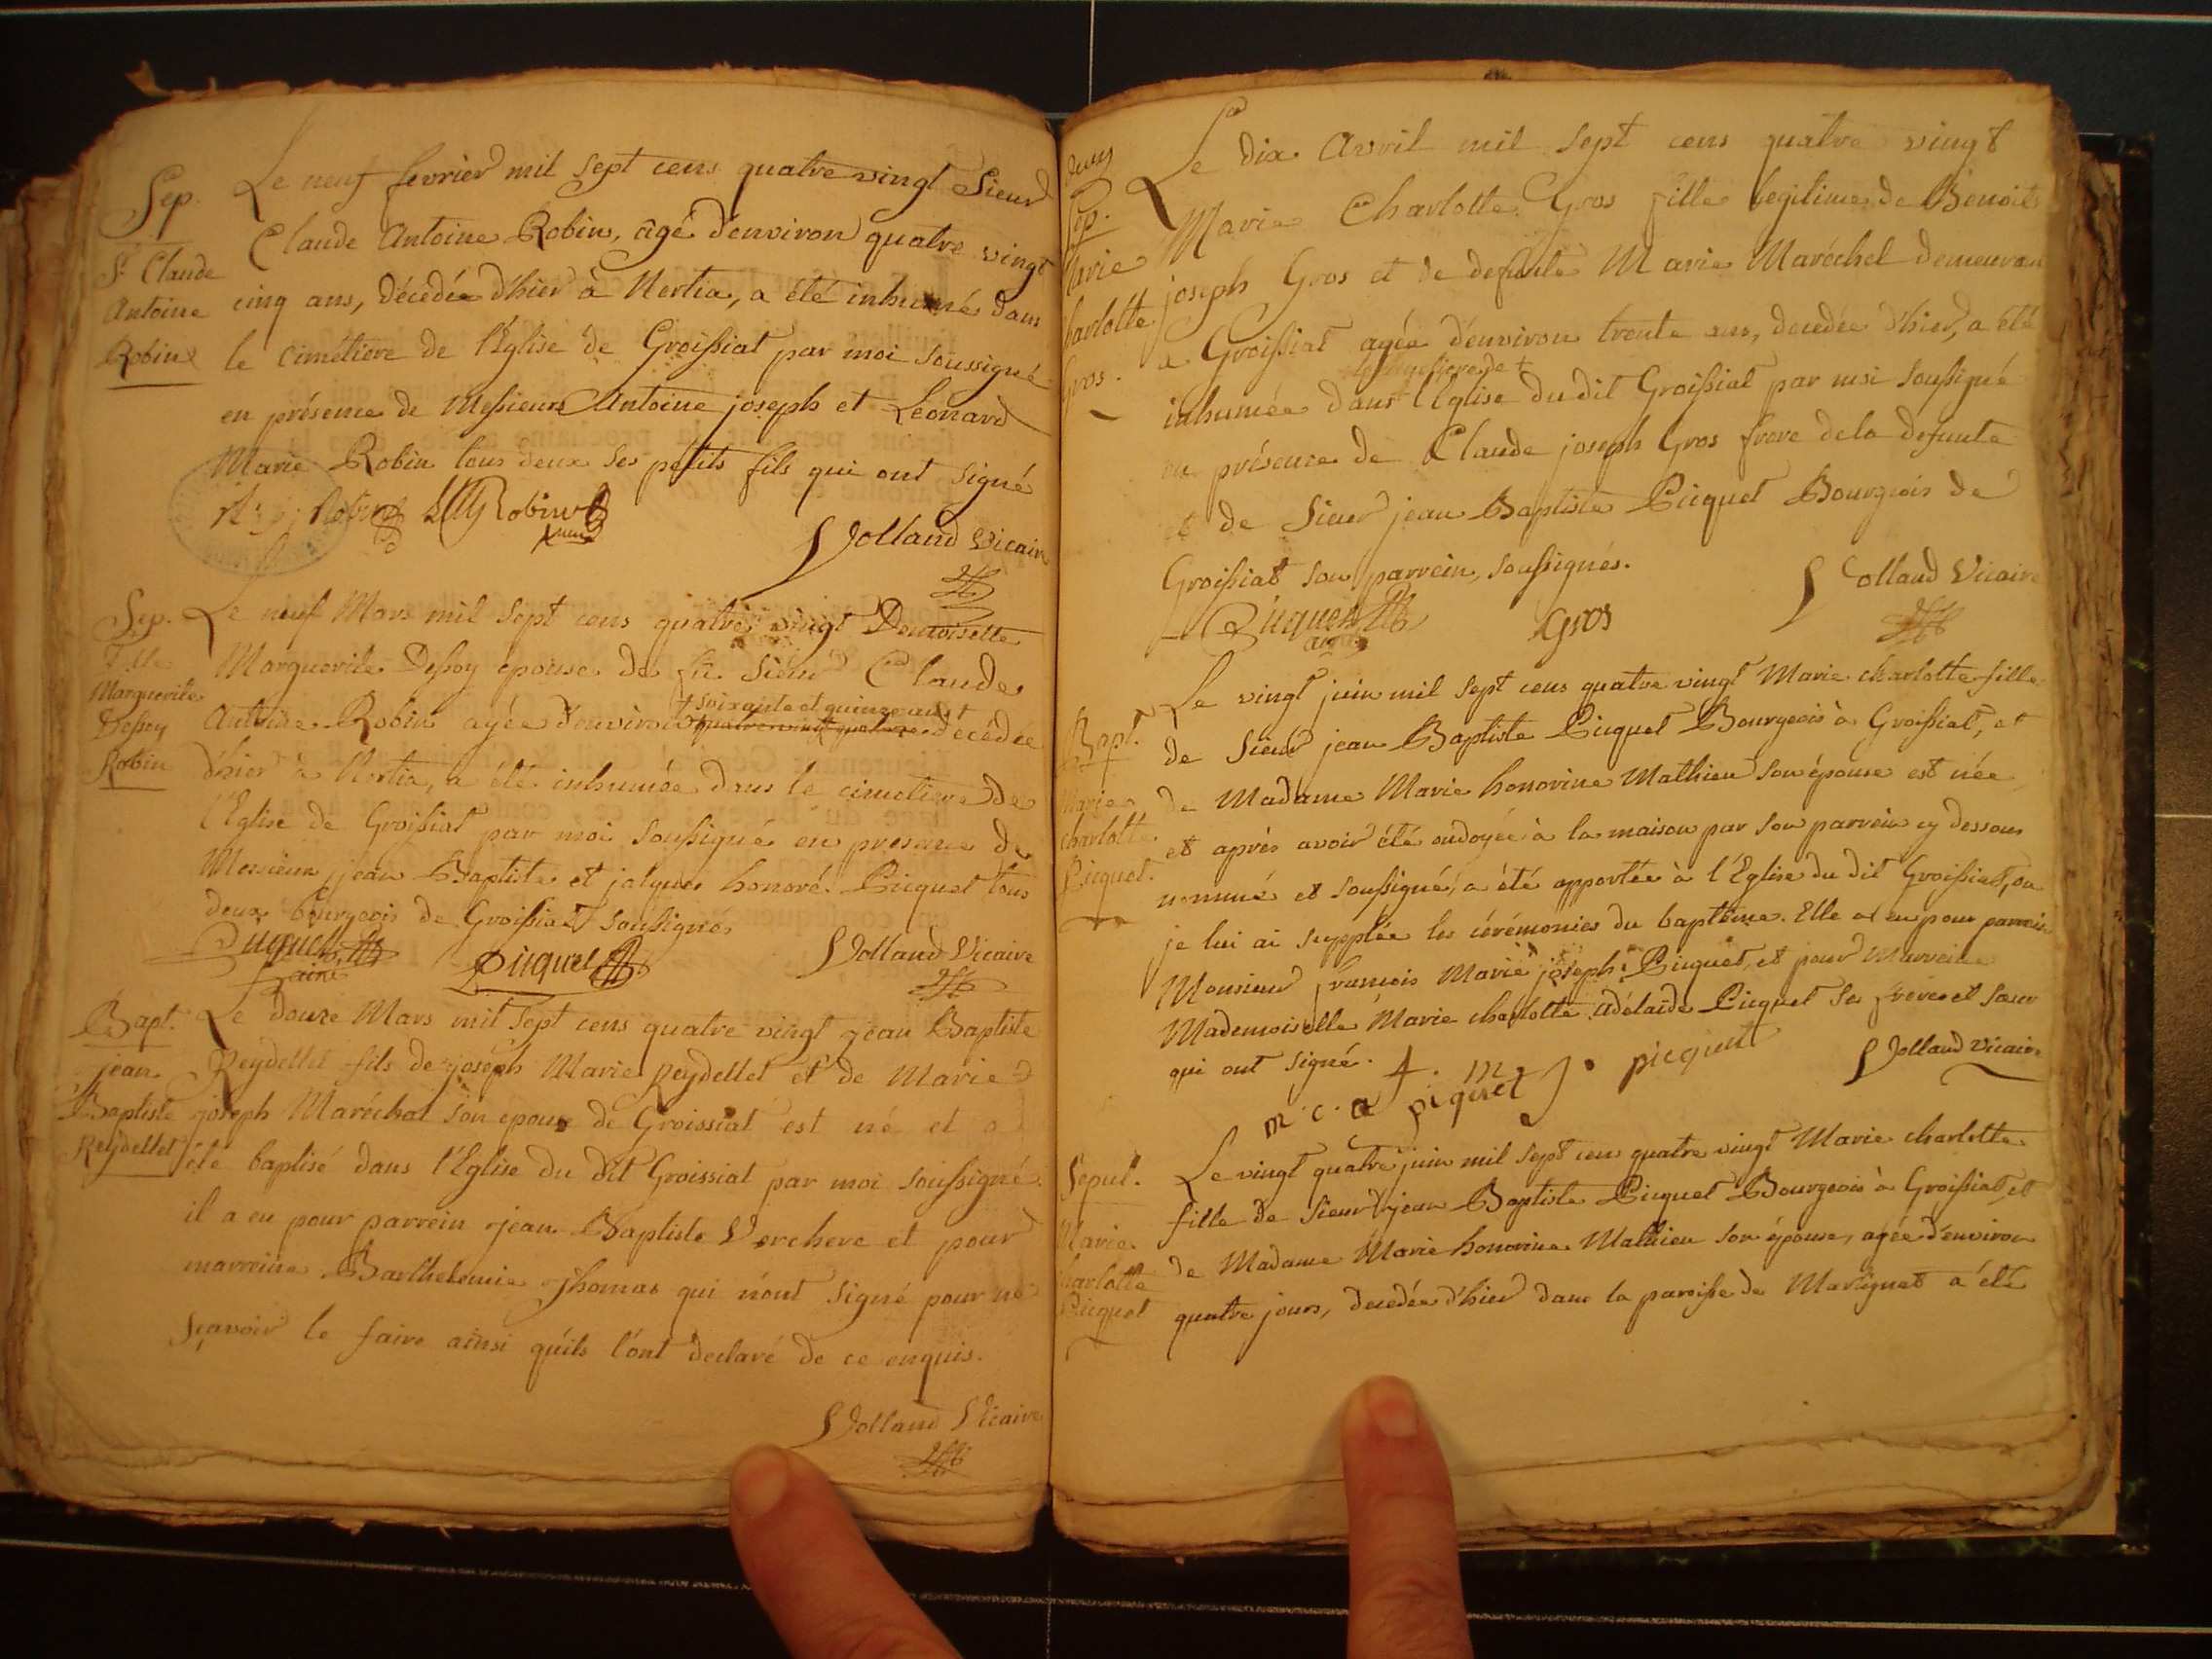 Sep.
Sr. Claude
Antoine
Robin
Le neuf fevrier mil sept cens quatre vingt Sieur
Claude Antoine Robin, âgé d'environ quatre vingt
cinq ans, décédée d'hier à Nertia, a été inhumé dans
le cimétiere de l'Église de Groissiat par moi soussigné
en présence de Messieurs Antoine joseph et Leonard
Marie Robin tous deux ses petits fils qui ont signé
Robin Robin
Jolland Vicaire
Sep.
Marguerite
Dessoy
Robin
Le neuf Mars mil sept cens quatre vingt Demoiselle
Marguerite Dessoy epouse de fu Sieur Claude
+ soixante et quinze ans +
Antoine Robin agée d'environ décédée
d'hier à Nertia, a été inhumée dans le cimetiere de
l'Eglise de Groissiat par moi soussigné en presence de
Messieurs jean Baptiste et jacques honoré Picquet tous
deux bourgeois de Groissiat soussignés
Picquet
ainé
Picquet
Jolland Vicaire
Bapt.
jean
Baptiste
Reydellet
Le douze Mars mil sept cens quatre vingt jean Baptiste
Reydellet fils de joseph Marie Reydellet et de Marie
joseph Maréchal son epouse de Groissiat est né et a
été baptisé dans l'Eglise du dit Groissiat par moi soussigné
il a eu pour parrein jean Baptiste Verchere et pour
marreine Barthelemie Thomas qui n'ont signé pour ne
sçavoir le faire ainsi qu'ils l'ont declaré de ce enquis.
Jolland Vicaire
Sep.
Marie
charlotte
Gros.
Le dix Avril mil sept cens quatre vingt
Marie Charlotte Gros fille legitime de Benoit
joseph Gros et de defunte Marie Maréchel demeurant
a Groissiat agée d'environ trente ans, decedée d'hier, a été
inhumée dans l'Eglise du dit Groissiat par moi soussigné
en présence de Claude joseph Gros frere de la defunte
et de Sieur jean Baptiste Picquet Bourgeois de
Groissiat son parrein, soussignés.
Picquet
ainé
Gros
Jolland Vicaire
Bapt.
Marie
charlotte
Picquet.
Le vingt juin mil sept cens quatre vingt Marie charlotte fille
de Sieur jean Baptiste Picquet Bourgeois à Groissiat, et
de Madame Marie honorine Mathieu son épouse est née
et aprés avoir été ondoyée à la maison par son parrein cy dessous
nommé et soussigné, a été apportée à l'Eglise du dit Groissiat, ou
je lui ai supplée les cérémonies du baptême. Elle a eu pour parrein
Monsieur françois Marie joseph Picquet, et pour Marreine
Mademoiselle Marie charlotte adélaïde Picquet ses frere et sœur
qui ont signé.
f. m. j. picquet
m. c. a piquet
Jolland vicaire
Sepul.
Marie
charlotte
Picquet
Le vingt quatre juin mil sept cens quatre vingt Marie charlotte
fille de Sieur jean Baptiste Picquet Bourgeois à Groissiat, et
de Madame Marie honorine Mathieu son épouse, agée d'environ
quatre jours, decedée d'hier dans la paroisse de Martignat a été